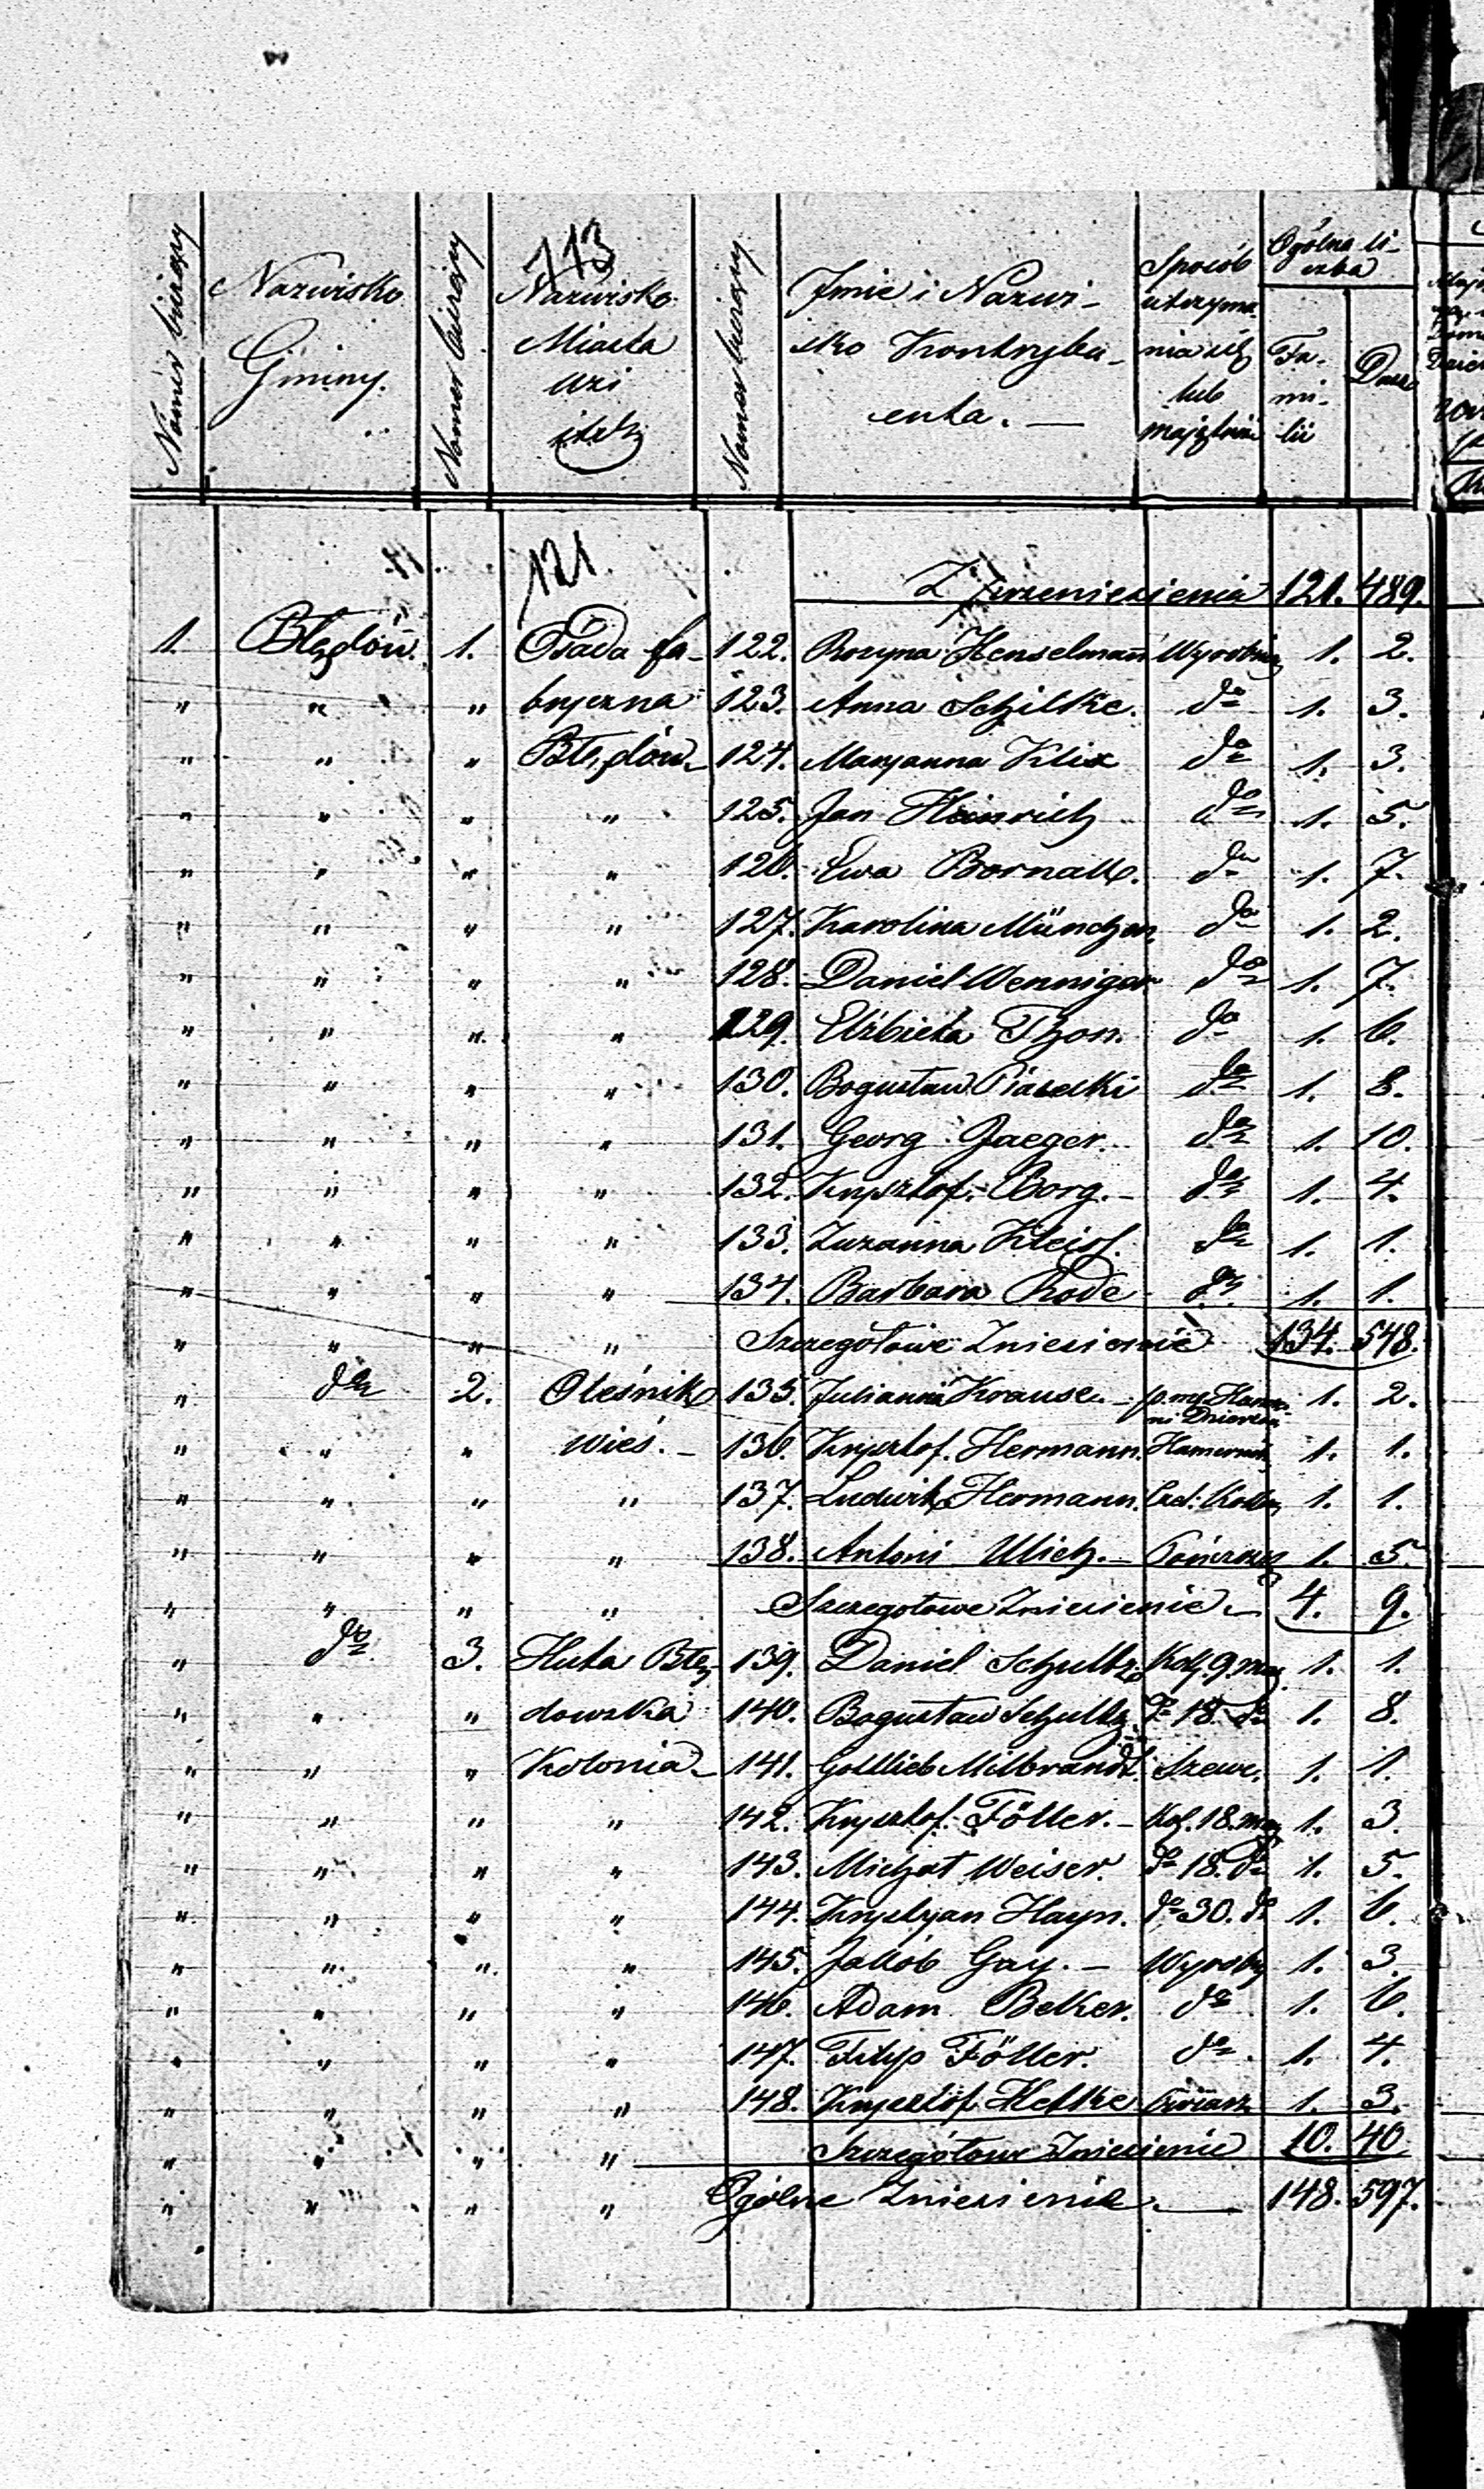 113
Numer bieżący | Nazwisko Gminy. | Numer bieżący | Nazwisko Miasta wsi itd | Numer bieżący | Imie i Nazwisko Kontrybuenta. — | Sposób utrzymania się lub majątków | Ogólna liczba Familii | Dusz
121.
Z przeniesienia 121. 489.
1. Błędów. 1. Osada fa- 122. Rozyna Henselmann Wyrobnica 1. 2.
" " " bryczna 123. Anna Schilke. do 1. 3.
" " " Błędów 124. Maryanna Klix do 1. 3.
" " " " 125. Jan Heinrich do 1. 5.
" " " " 126. Ewa do 1. 7.
" " " " 127. Karolina do 1. 2.
" " " " 128. Daniel Wenniger do 1. 7.
" " " " 129. Elżbieta Thon. do 1. 6.
" " " " 130. Bogusław Piasecki do 1. 8.
" " " " 131. Georg Jaeger. do 1. 10.
" " " " 132. Krysztof Borg. — do 1. 4.
" " " " 133. Zuzanna Kleist. do 1. 1.
" " " " 134. Barbara Rode do 1. 1.
" " " " Szczegółowe Zniesienie 134. 548.
" do 2. Oleśnik 135. Julianna Krause. — 1. 2.
" " " wieś. — 136. Krysztof. Hermann. 1. 1.
" " " " 137. Ludwik Hermann. 1. 1.
" " " " 138. Antoni Ulich. — 1. 5.
" " " " Szczegołowe Zniesienie — 4. 9.
" do 3. Huta Błę- 139. Daniel Schultz Kol. 9. mor 1. 1.
" " " dowska 140. Bogusław Schultz do 18. do 1. 8.
" " " Kolonia — 141. Gottlieb Milbrandt. Szewc. 1. 1.
" " " " 142. Krysztof. Föller. — Kol. 18. mor 1. 3.
" " " " 143. Michał Weiser. do 18. do 1. 5.
" " " " 144. Krystyan Hayn. do 30. do 1. 6.
" " " " 145. Jakób Gay. — Wyrobn 1. 3.
" " " " 146. Adam Belker. do 1. 6.
" " " " 147. Filip Föller. do 1. 4.
" " " " 148. Krysztof. Helke 1. 3.
" " " " Szczegółowe Zniesienie 10. 40
" " " " Ogólne Zniesienie. — 148. 597.